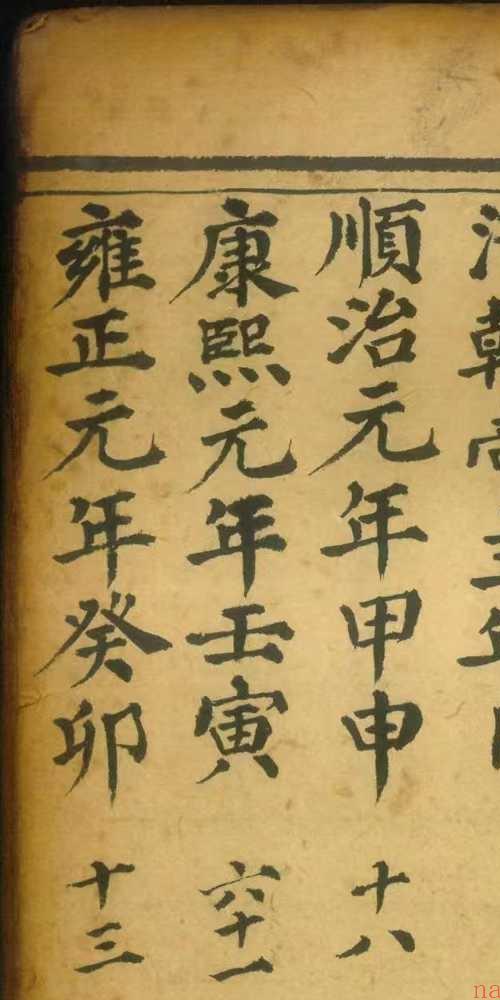 三年
順治元年甲申 十八
康熙元年壬寅 六十一
雍正元年癸卯 十三
na